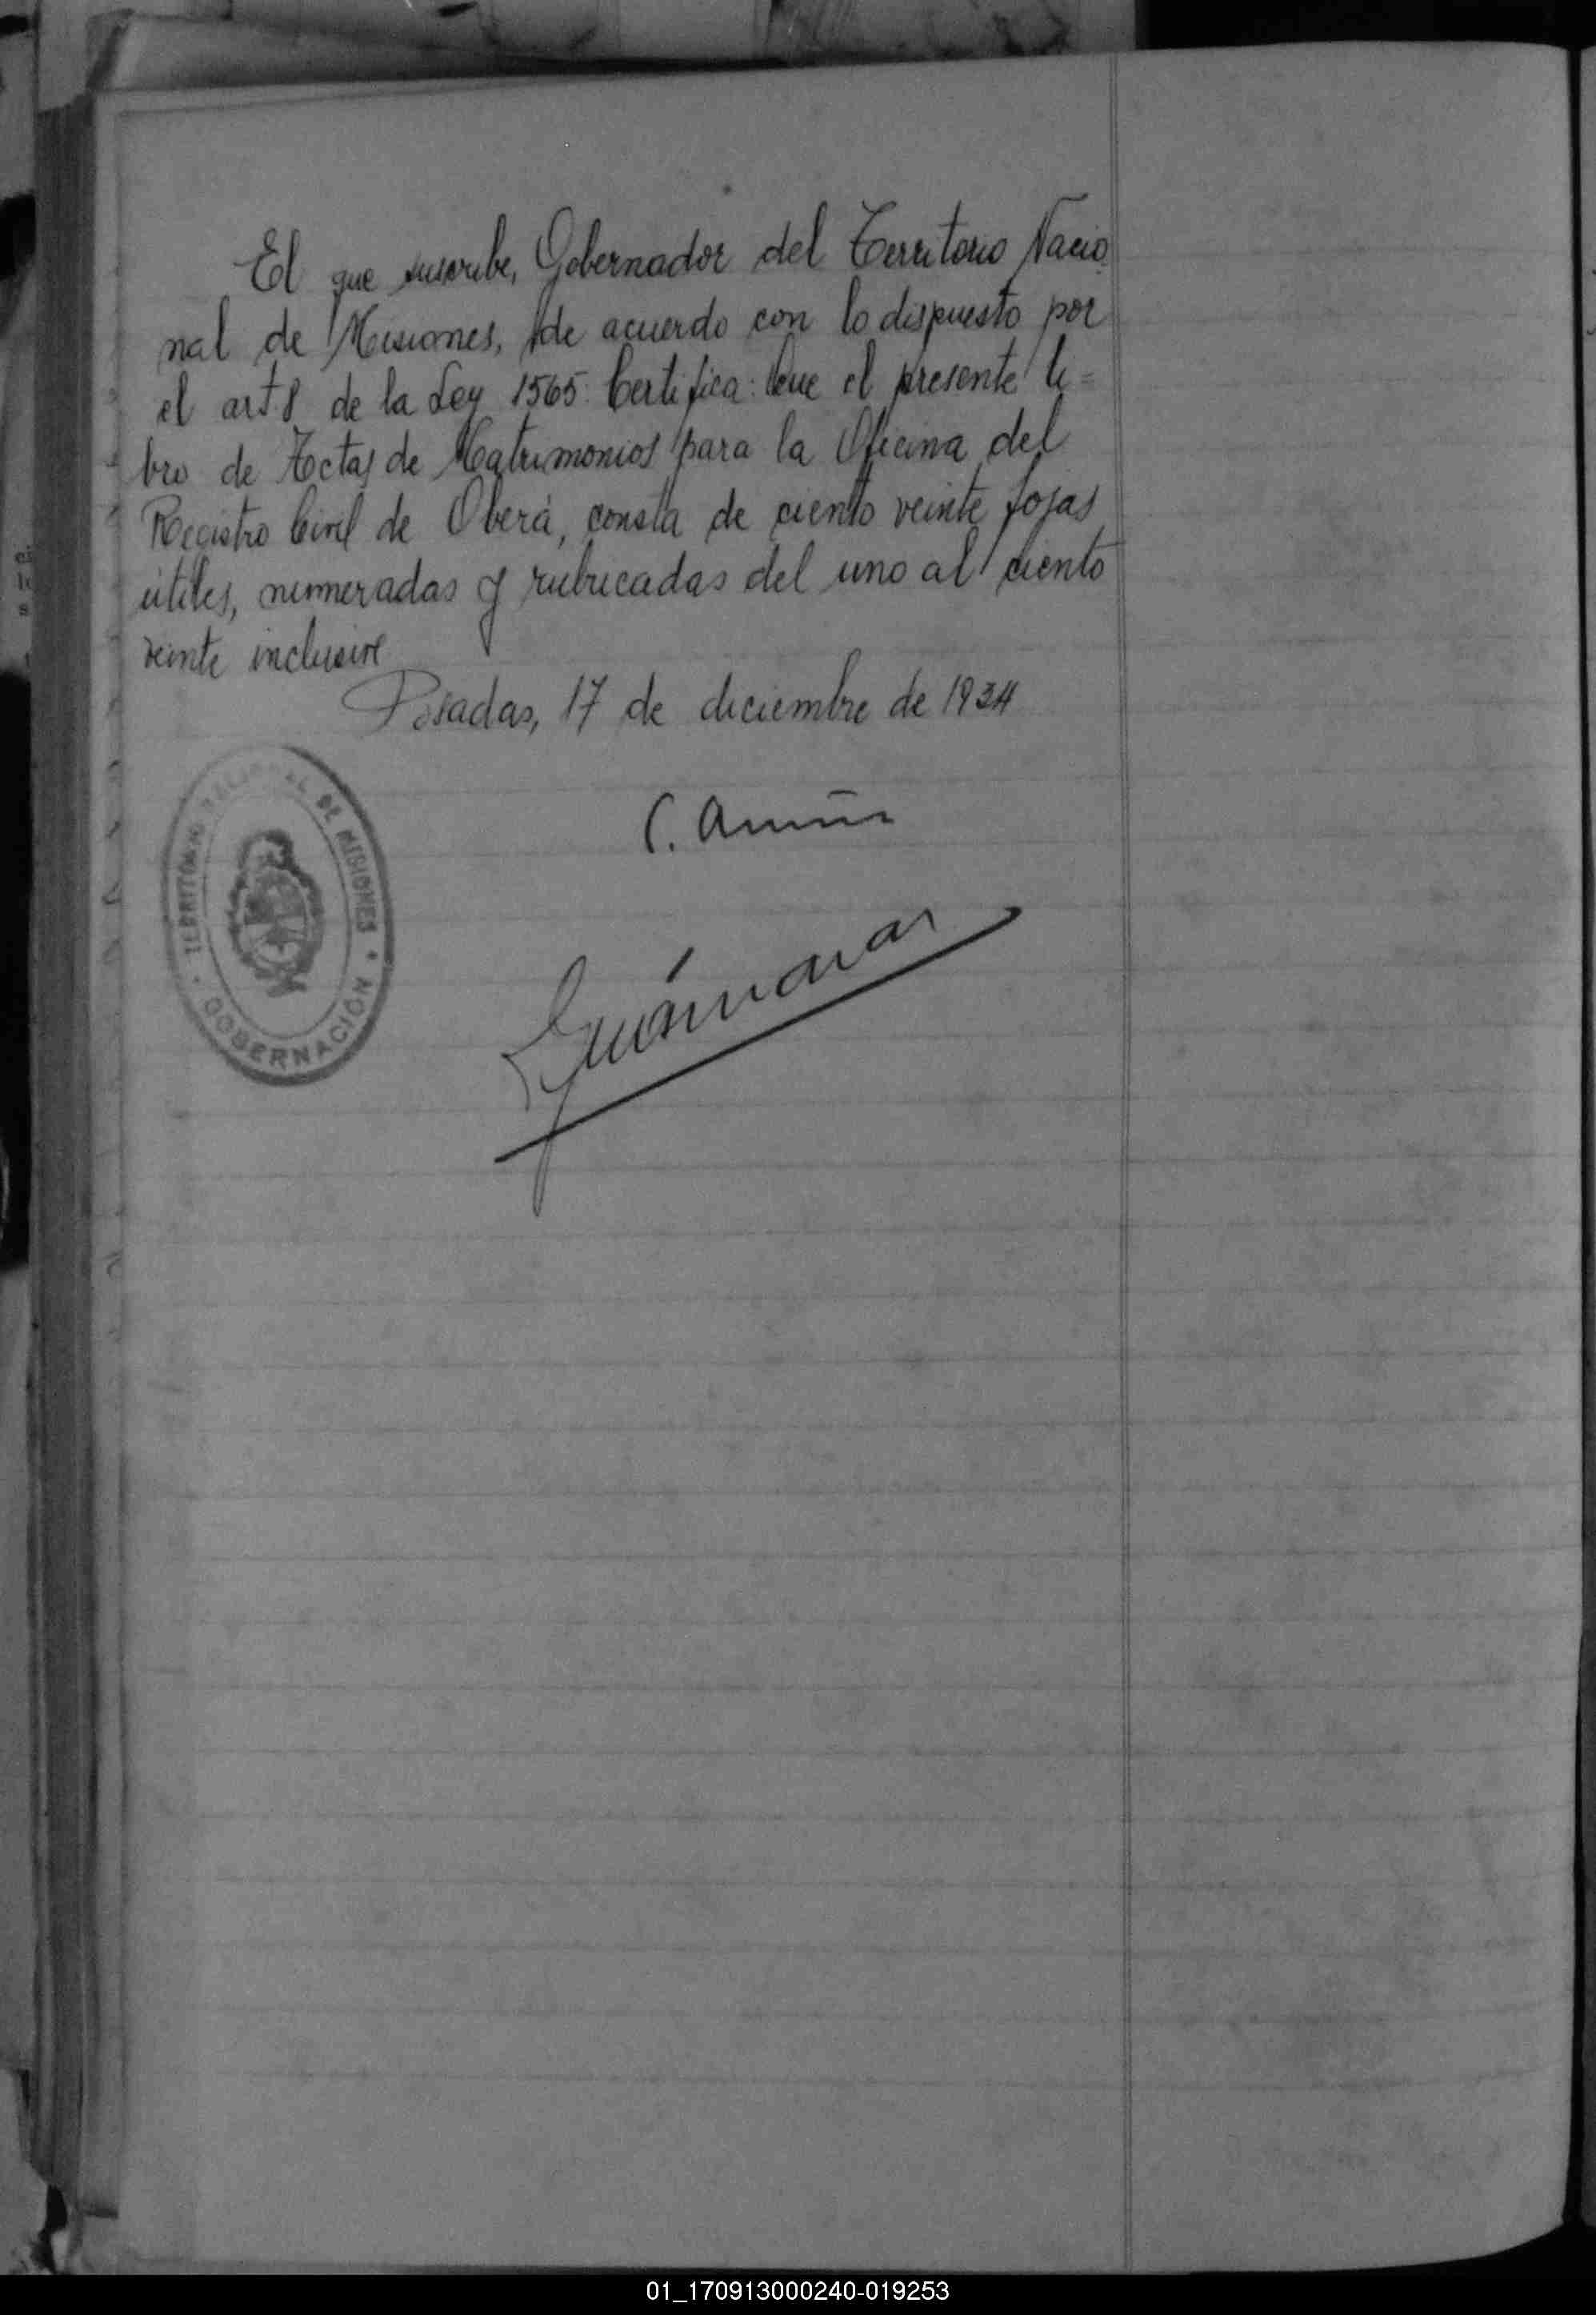 El que suscribe, Gobernador del Territorio Nacio
nal de Misiones, de acuerdo con lo dispuesto por
el art 8 de la Ley 1565: Certifica: Que el presente li=
bro de Actas de Matrimonios para la Oficina del
Registro Civil de Oberá, consta de ciento veinte fojas
útiles, numeradas y rubricadas del uno al ciento
veinte inclusive
Posadas, 17 de diciembre de 1934
TERRITORIO NACIONAL DE MISIONES
GOBERNACIÓN
01_170913000240-019253